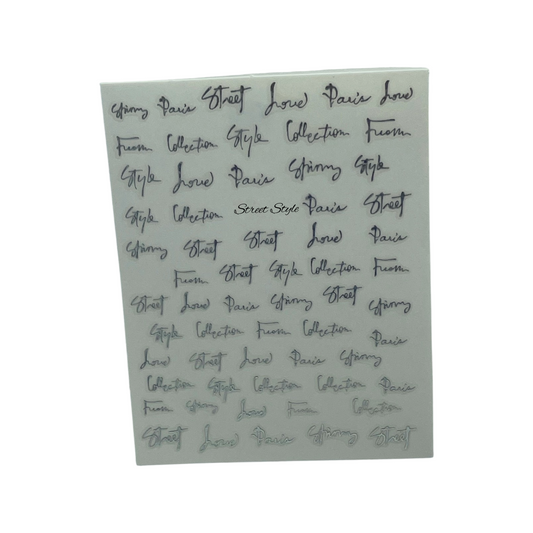 Spinny Paris Street Love Paris Love
From Collection Style Collection From
Style Love Paris Spinny Style
Style Collection Street Style Paris Street
Spinny Street Street Love Paris
From Street Style Collection From
Street Love Paris Spinny Street Spinny
Style Collection From Collection Paris
Love Street Love Paris Spinny
Collection Style Collection Collection Paris
From Spinny Love From Collection
Street Love Paris Spinny Street